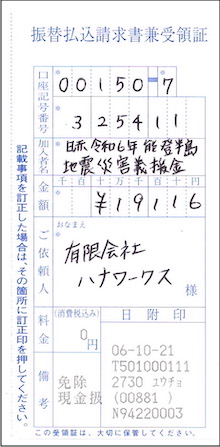 振替払込請求書兼受領証
口座記号番号
00150-7
325411
加入者名
日赤令和6年能登半島
地震災害義援金
金額
千百十万千百十円
¥19116
ご依頼人
おなまえ
有限会社
ハナワークス
様
料金
(消費税込み)
0円
日附印
備考
免除
現金扱
06-10-21
T501000111
2730 ユウチョ
(00881)
N94220003
記載事項を訂正した場合は、その箇所に訂正印を押してください。
この受領証は、大切に保管してください。